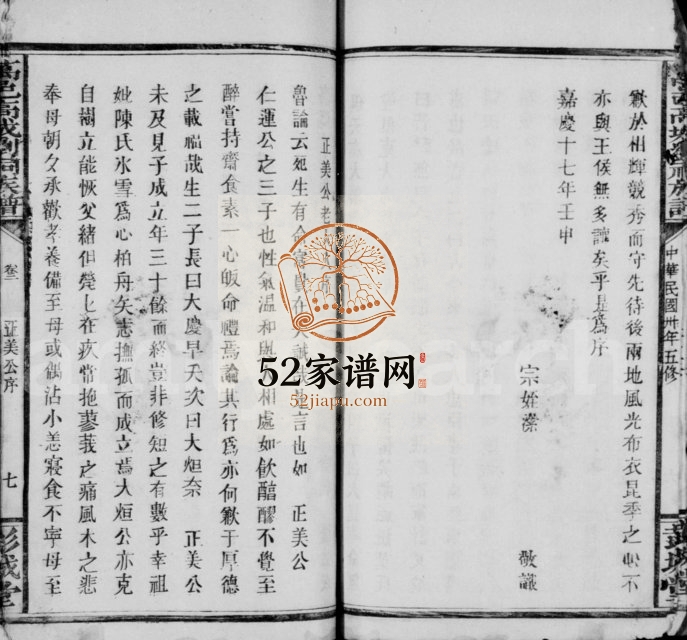 萬邑高城劉氏祠族譜
中華民國卅年五修
彭城堂
歉於相輝競秀而守先待後兩地風光布衣昆季之軼不
亦與王侯無多讓矣乎是為序
嘉慶十七年壬申
宗姪濚 敬識
正美公老
魯論云死生有命富貴在 言也如 正美公
仁運公之三子也性氣溫和與 相處如飲醕醪不覺至
醉嘗持齋食素一心皈命禮焉論其行爲亦何歉于厚德
之載福哉生二子長曰大慶早夭次曰大烜奈 正美公
未及見子成立年三十餘而終豈非修短之有數乎幸祖
妣陳氏氷雪爲心柏舟矢志撫孤而成立焉大烜公亦克
自樹立能恢父緒但煢煢在疚常抱蓼莪之痛風木之悲
奉母朝夕承歡孝養備至母或偶沾小恙寢食不寧母至
卷二
正美公序
七
彭城堂
52家谱网
52jiapu.com